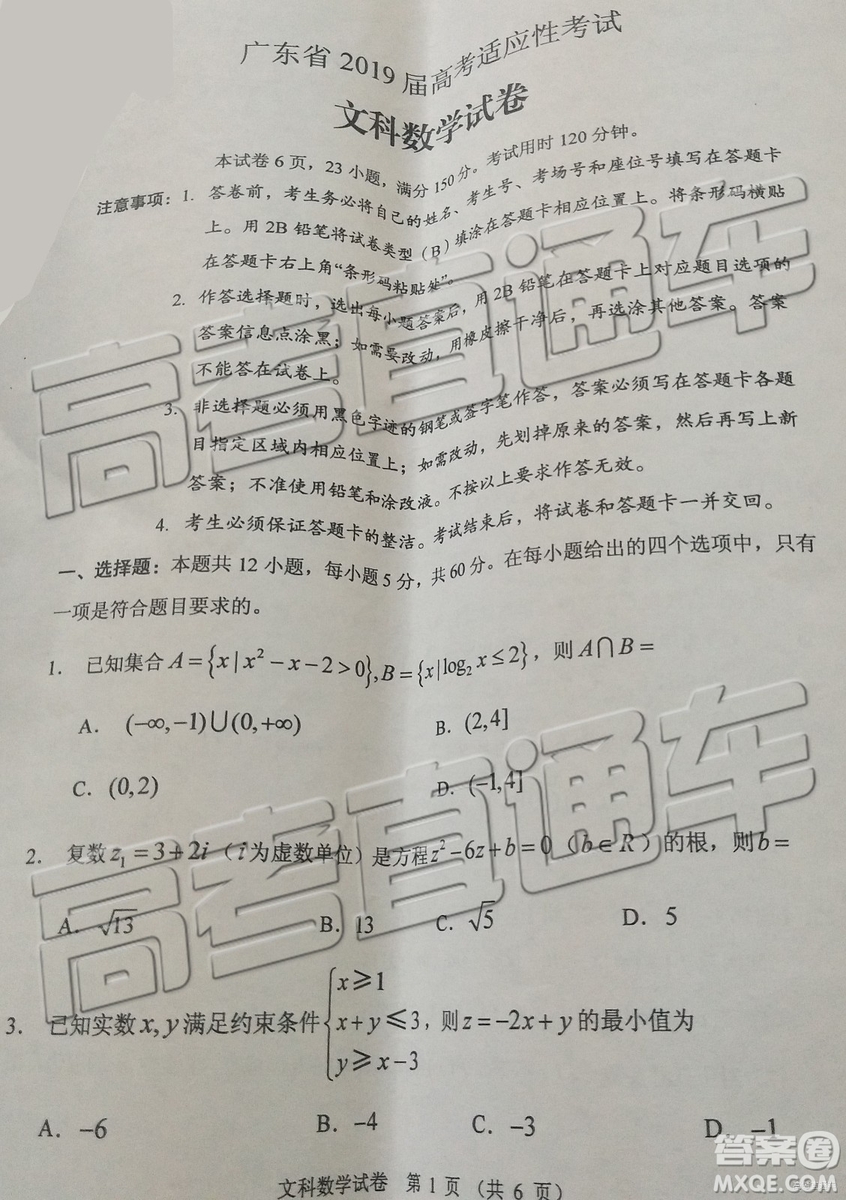 广东省 2019 届高考适应性考试
文科数学试卷
本试卷 6 页，23 小题，满分 150 分。考试用时 120 分钟。
注意事项：1. 答卷前，考生务必将自己的姓名、考生号、考场号和座位号填写在答题卡
上。用 2B 铅笔将试卷类型（B）填涂在答题卡相应位置上。将条形码横贴
在答题卡右上角“条形码粘贴处”。
2. 作答选择题时，选出每小题答案后，用 2B 铅笔在答题卡上对应题目选项的
答案信息点涂黑；如需要改动，用橡皮擦干净后，再选涂其他答案。答案
不能答在试卷上。
3. 非选择题必须用黑色字迹的钢笔或签字笔作答，答案必须写在答题卡各题
目指定区域内相应位置上；如需改动，先划掉原来的答案，然后再写上新
答案；不准使用铅笔和涂改液。不按以上要求作答无效。
4. 考生必须保证答题卡的整洁。考试结束后，将试卷和答题卡一并交回。
一、选择题：本题共 12 小题，每小题 5 分，共 60 分。在每小题给出的四个选项中，只有
一项是符合题目要求的。
1. 已知集合 A={x|x²-x-2>0},B={x|log₂x≤2}，则 A∩B=
A. (-∞,-1)∪(0,+∞) B. (2,4]
C. (0,2) D. (-1,4]
2. 复数 z₁=3+2i（i 为虚数单位）是方程 z²-6z+b=0（b∈R）的根，则 b=
A. √13 B. 13 C. √5 D. 5
x≥1
3. 已知实数 x,y 满足约束条件 { x+y≤3，则 z=-2x+y 的最小值为
y≥x-3
A. -6 B. -4 C. -3 D. -1
文科数学试卷 第 1 页 （共 6 页）
高考直通车
高考直通车
答案圈
MXQE.COM